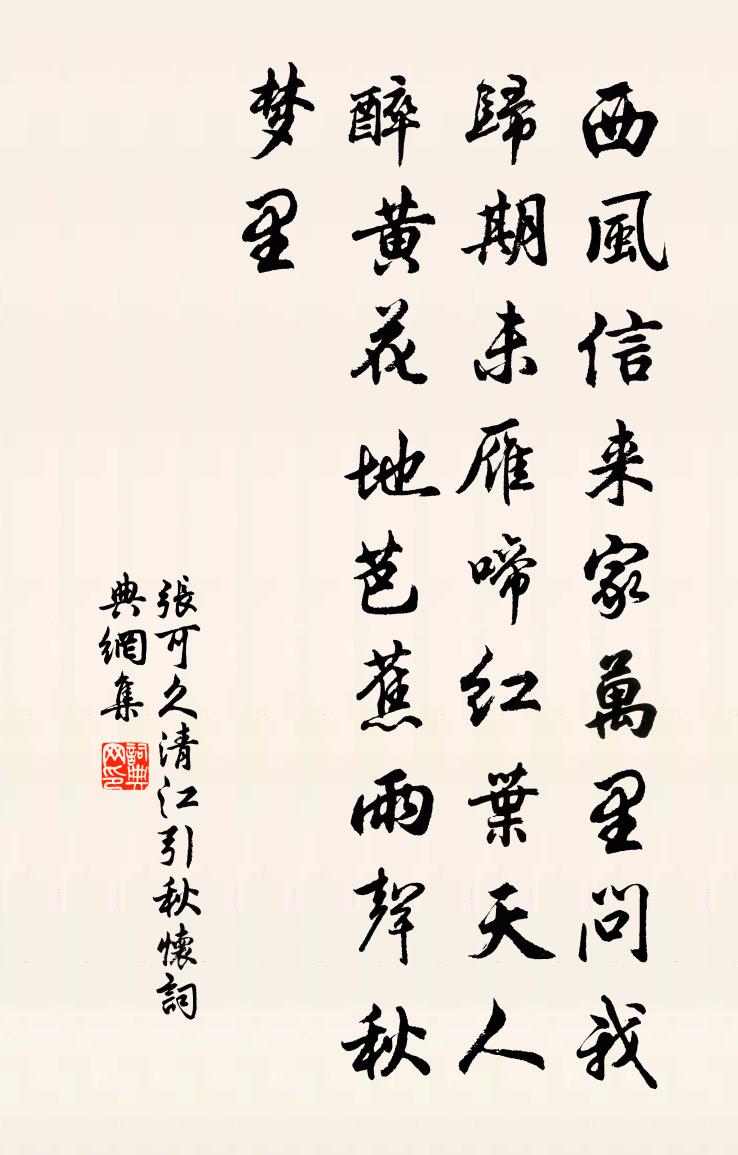 西風信来家萬里問我
歸期未雁啼紅葉天人
醉黄花地芭蕉雨聲秋
梦里
張可久清江引秋懷詞
典網集
詞典
网印